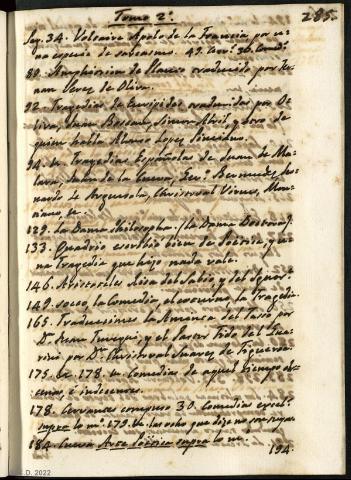 285.
Tomo 2º.
Pag. 34. Voltaire Apolo de la Francia por u-
na especie de sarcasmo. 49.
80. Amphitrion de Plauto traducido por Fer-
nan Perez de Oliva.
92. Tragedias de Euripides traducidas por O-
liva, Juan Boscan, Simon Abril, y otro de
quien habla Alonso Lopez Pinciano.
94. Tragedias Españolas de Juan de Ma-
lara, Juan de la Cueva, Bermudez, Leo-
nardo de Argensola, Christoval Virues, Mon-
tiano, &c.
129. La Dama Philosopha. (La Dama Doctora).
133. Quadrio escribió bien de Poësia, y u-
na Tragedia que hizo nada vale.
146. Aristoteles
149. socco, la Comedia, el coturno, la Tragedia.
165. Traducciones la Aminta del Taso por
Dn. Juan Jauregui, y el Pastor Fido del Gua-
rini por Dn. Christoval Suarez de Figueroa.
175. &c. 178. Comedias de aquel tiempo obs-
cenas, è indecentes.
178. Cervantes compuso 30. Comedias
supra lo m. 179. las ocho que dizo no son suyas
184. Cueva Arte Poëtica supra lo m.
194.
D. 2022